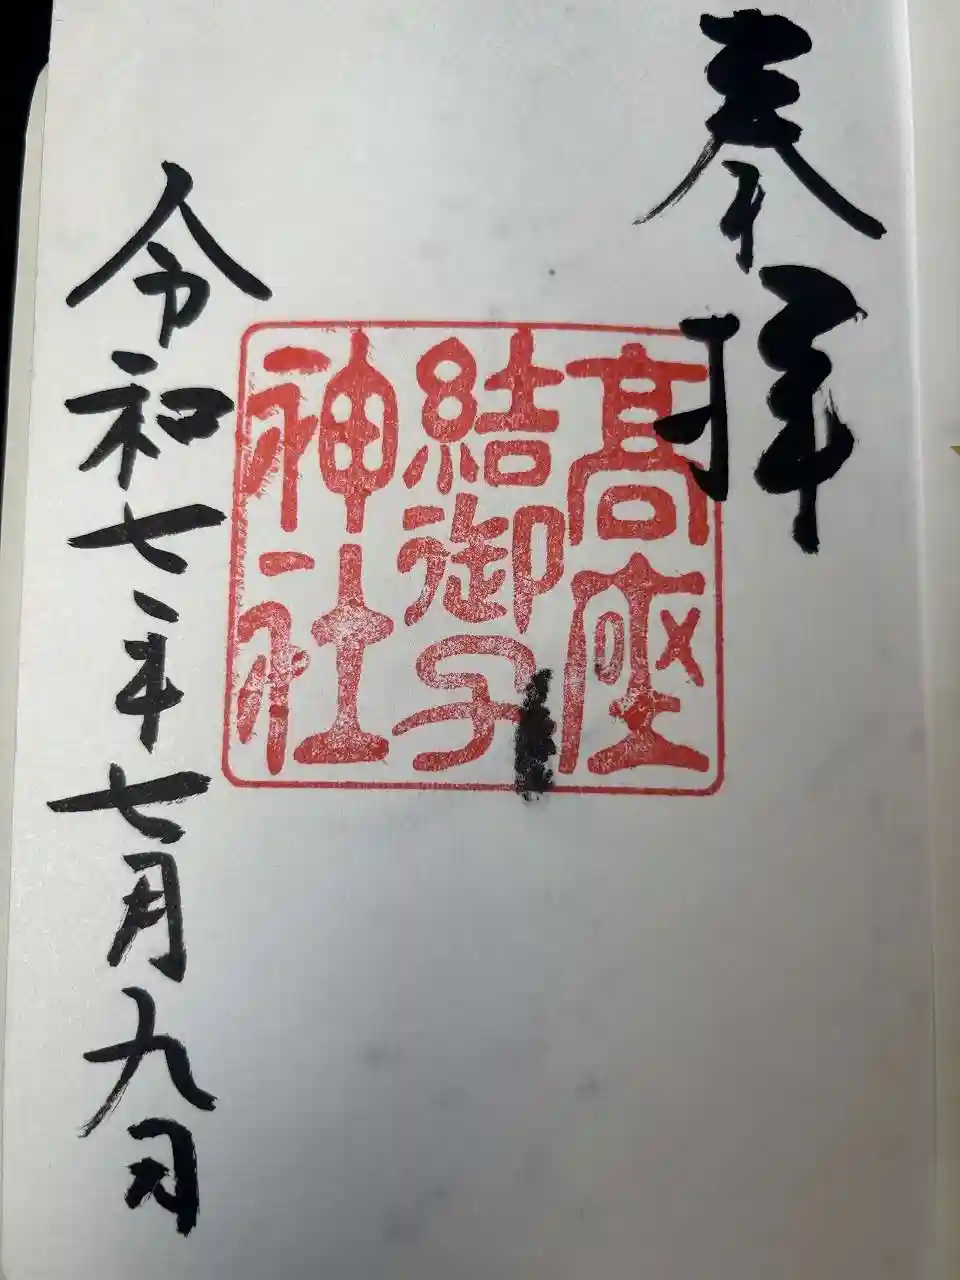 奉拝
高座
結御子
神社
令和七年七月九日